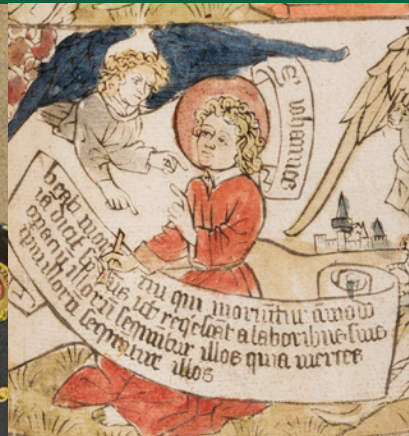 S iohannes
beati mor nu qui moriūtur amodo
iā dicit spūs ut reqescāt a laboribus suis
opera illorū sequntur illos quia merces
illorū sequntur illos